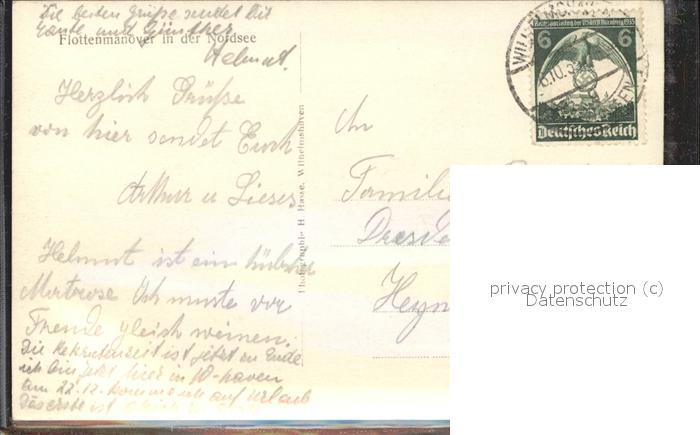 Die besten Grüße sendet Dir
Tante und Günther
Helmut.
Flottenmanöver in der Nordsee
Herzlich Grüße
von hier sendet Euch
Arthur u Lieses
Helmut ist ein hübscher
Matrose Ich muste vor
Freude gleich weinen.
Die Rekrutenzeit ist jetzt zu Ende
ich bin jetzt hier in W-haven
am 22.12. komme ich auf Urlaub
Das erste ist
Photographie H. Hasse, Wilhelmshaven
An
Famili
Dresde
Heyn
WILH
6.10.3
EN
Reichsparteitag der NSDAP Nürnberg 1935
6 6
Deutsches Reich
privacy protection (c)
Datenschutz